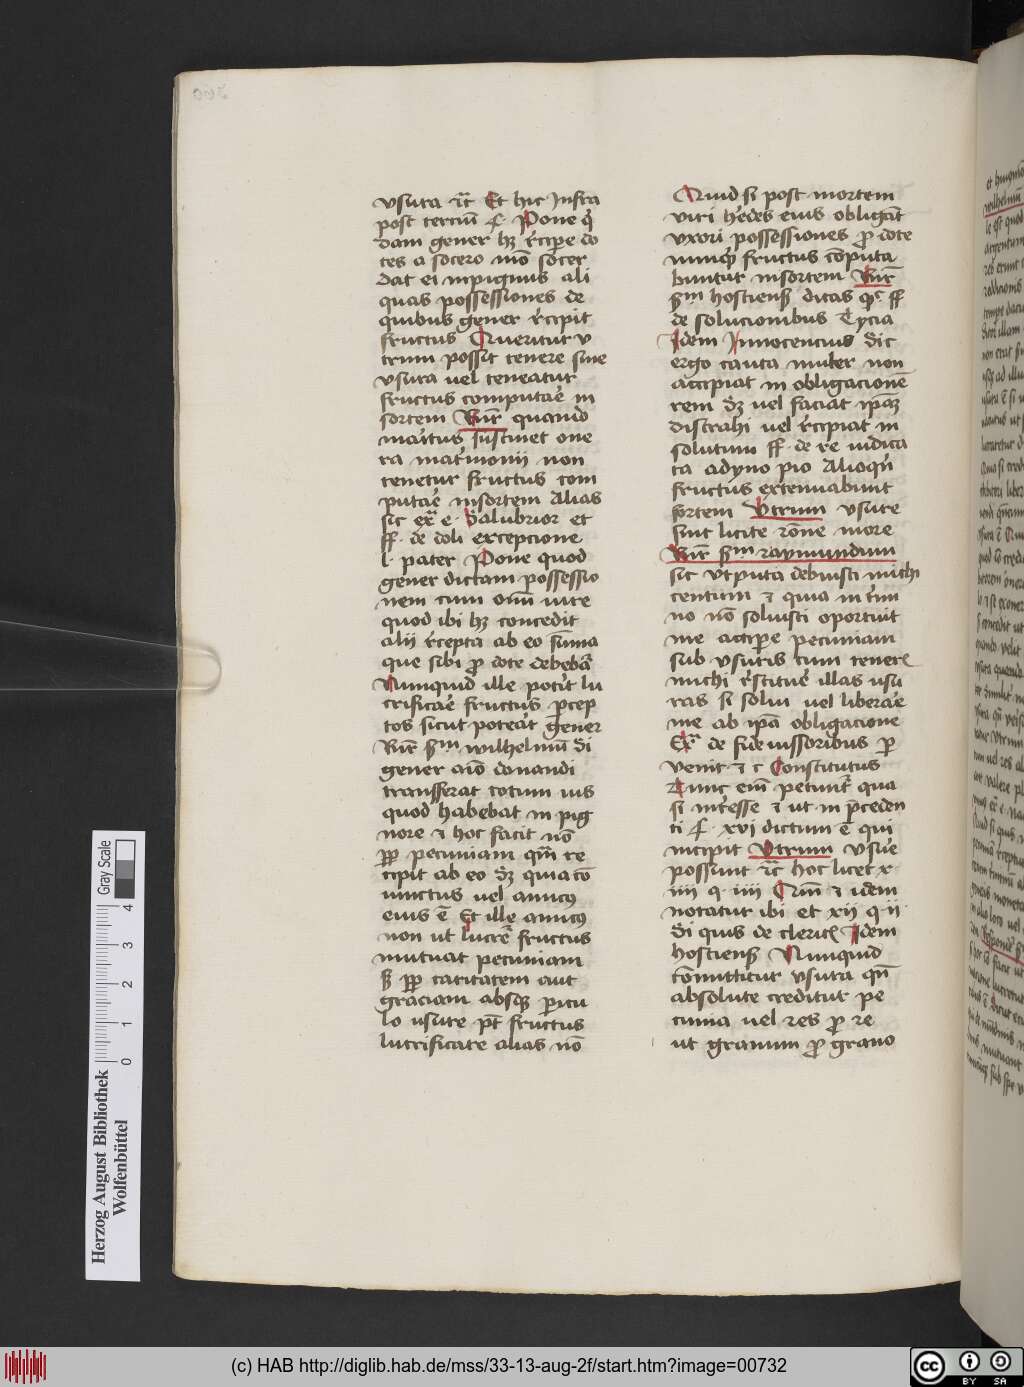 vsura rc̄ Et hic Infra
post terciū ₵ Pone q̉
dam gener hȝ rc̄ipere do
tes a socero mō socer
dat ei inpignus ali
quas possessiones de
quibus gener rc̄ipit
fructus Queritur v
trum possit tenere sine
vsura uel teneatur
fructus computar̄e in
sortem Rn̄r quamd
maritus sustinet one
ra mat̉monii non
tenetur fructus com
putar̄e insortem Alias
sic ex̄ e · Salubrior et
ff · de doli excepcione
l · pater Pone quod
gener dictam possessio
nem cum om̄i iure
quod ibi hȝ concedit
alii rc̄epta ab eo sum̄a
que sibi ꝓ dote debebat̄
Numquid ille pot̉it lu
crificar̄e fructus ꝑcep
tos sicut poterat gener
Rn̄r sm̄ wilhelmū Si
gener aīo donandi
transferat totum ius
quod habebat in pig
nore ⁊ hoc facit nō
ꝓp pecuniam qm̄ re
cipit ab eo sȝ quia cō
iunctus uel amicꝯ
eius ē Et ille amicꝯ
non ut lucret̄ fructus
mutuat pecuniam
sȝ ꝓp caritatem aut
graciam absqȝ ꝑicu
lo usure pt̄ fructus
lucrificare alias nō
Quid si post mortem
viri h̉edes eius obligant̄
vxori possessiones ꝓ dote
numqd̉ fructus cōputa
buntur insortem Rn̄r
sm̄ hostiens̄ dicas qd̉ ff
de solucionibus Ticia
Idem Innocencius dic
ergo cauta mulier non
accipiat in obligacionē
rem sȝ uel faciat ip̄aȝ
distrahi uel rc̄ipiat in
solutum ff · de re iudica
ta adyuo pio Alioqn̄
fructus extenuabunt
sortem Vtrum vsure
sint licite rōne more
Rn̄r sm̄ raymundum
sic vtputa debuisti michi
centum ⁊ quia in t̉mi
no nō soluisti oportuit
me accipere pecuniam
sub vsuris tum tenere
michi rs̄tituer̄e illas usu
ras si solui uel liberar̄e
me ab ip̄a obligacione
Ex̄ de fideiussoribus ꝑ
venit ⁊ c Constitutus
Tunc em̄ petunt̄ qua
si int̉esse ⁊ ut in p̄ceden
ti ₵ · xvi dictum ē qui
incipit Vtrum vsur̄e
possunt rc̄ hoc licet x ·
iiii q · iiii Cum̄ ⁊ idem
notatur ibi et xii q · ii ·
Si quis de cleric̄ Idem
hostiens̄ Numquid
cōmittitur vsura qn̄
absolute creditur pe
cunia uel res ꝓ re
ut granum ꝓ grano
Herzog August Bibliothek
Wolfenbüttel
Gray Scale
0 1 2 3 4
(c) HAB http://diglib.hab.de/mss/33-13-aug-2f/start.htm?image=00732
cc BY SA